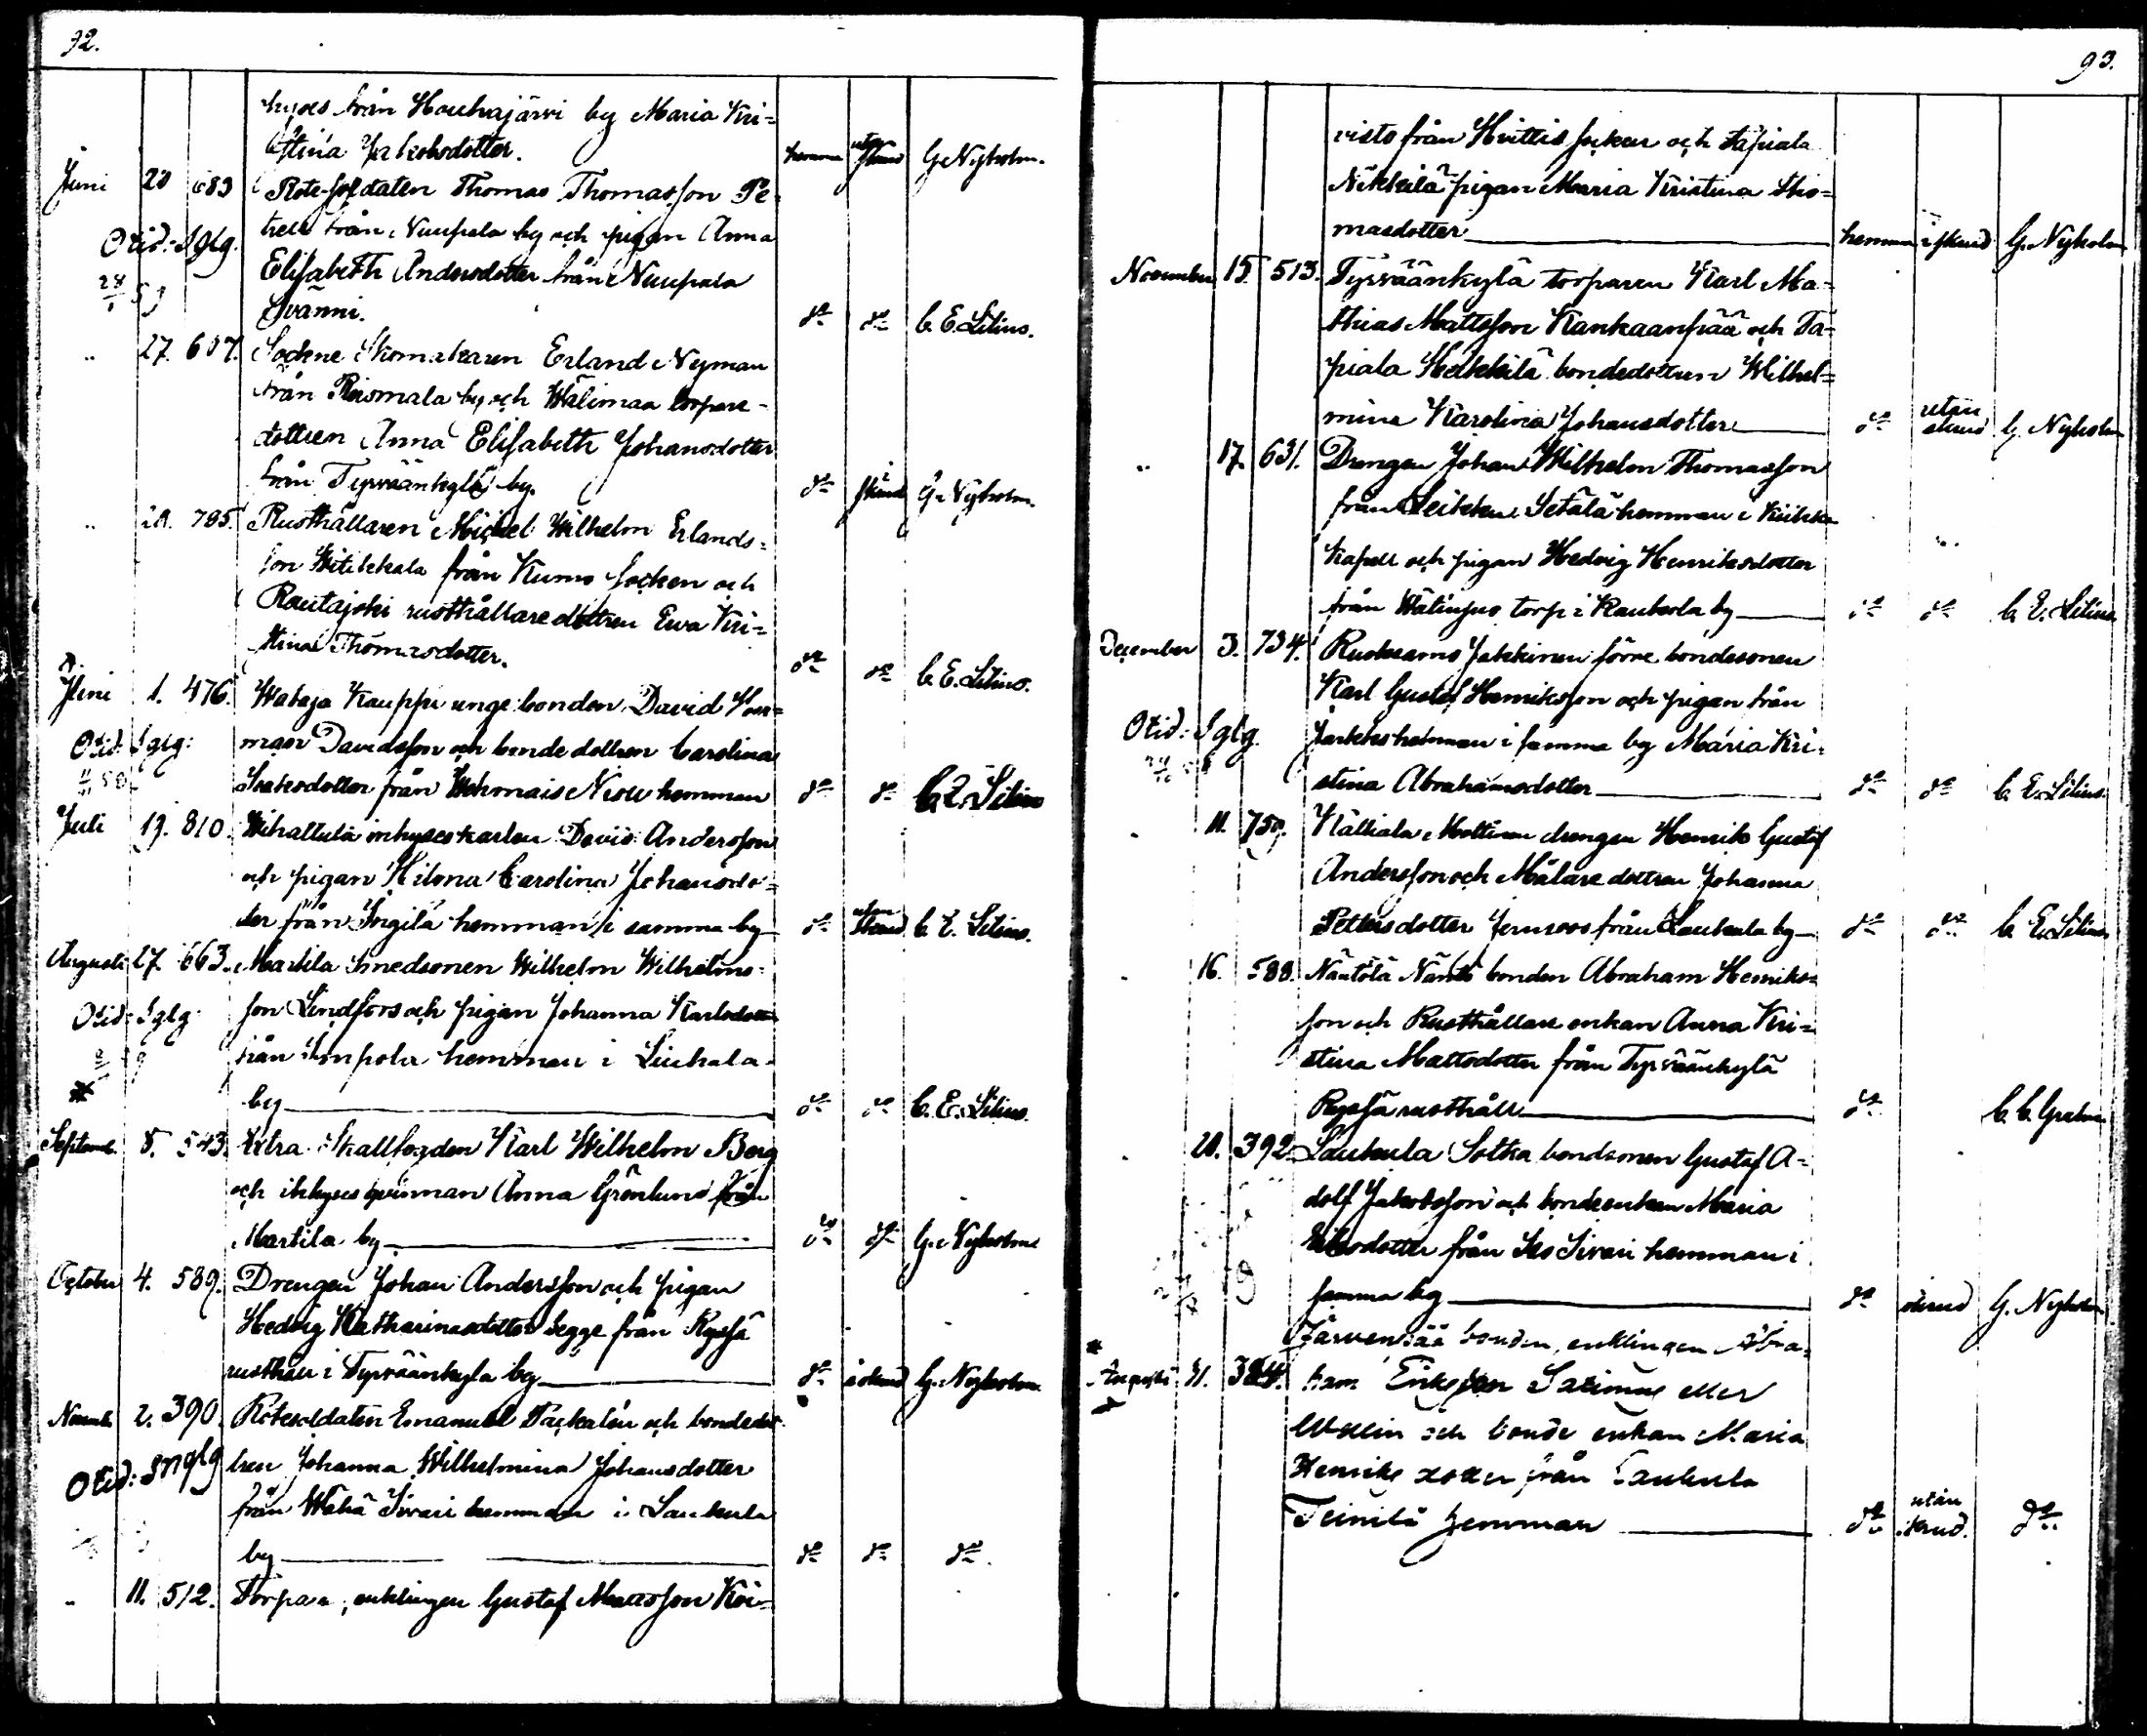 92.
hyses från Houhajärvi by Maria Kri=
stina Jakobsdotter. hemma utan skrud G. Nyholm.
Juni 20 683 Rote-soldaten Thomas Thomasson Pe-
trell från Nuupala by och pigan Anna
Otid: Sglg.
Elisabeth Andersdotter från Nuupala
Svänni. do do C. E. Lilius.
" 27. 607. Sockne Skomakaren Erland Nyman
från Roismala by och Wälimaa torpare-
dottren Anna Elisabeth Johansdotter
från Tyrväänkylä by. do i skrud G. Nyholm.
" 795. Rusthållaren Mickel Wilhelm Erlands=
son Witikkala från Kumo socken och
Rautajoki rusthållaredottren Ewa Kri=
stina Thomasdotter. do do C. E. Lilius.
Juni 1. 476. Wataja Kauppi unge bonden David Her=
man Davidsson och bonde dottren Carolina
Otid: Sglg:
Isaksdotter från Wehmais Niou hemman do do C. E. Lilius
Juli 19. 810. Wihattula inhyses karlen David Andersson
och pigan Hilma Carolina Johansdo=
ter från Yrgilä hemman i samma by do utan skrud C. E. Lilius.
Augusti 27. 663. Martila Smedsonen Wilhelm Wilhelms=
son Lindfors och pigan Johanna Karlsdotter
Otid: Sglg.
från Simpola hemman i Liuhala
by do do C. E. Lilius.
Septemb. 8. 543. Extra Skallfogden Karl Wilhelm Berg
och inhyses qvinnan Anna Grönlund från
Martila by do do G. Nyholm
October 4. 589. Drengen Johan Andersson och pigan
Hedvig Katharinasdotter Segge från Ryssä
rusthåll i Tyrväänkylä by do i skrud G. Nyholm
Novemb. 2. 390. Rotesoldaten Emanuel Täckalén och bondedot-
tren Johanna Wilhelmina Johansdotter
Otid: Snglg
från Wähä Sivari hemman i Laukula
by do do do.
" 11. 512. Torpare, enklingen Gustaf Mattsson Koi=
93.
visto från Hvittis socken och Tapiala
Nikkilä pigan Maria Kristina Tho=
masdotter hemma i skrud G. Nyholm
November 15. 513. Tyrväänkylä torparen Karl Ma=
thias Mattsson Kankaanpää och Ta=
piala Heikkilä bondedottren Wilhel=
mina Karolina Johansdotter do utan skrud G. Nyholm
" 17. 631. Drengen Johan Wilhelm Thomasson
från Leikku Setälä hemman i Kiikka
kapell och pigan Hedvig Henriksdotter
från torp i Kaukola by do do C. E. Lilius
December 3. 734. Ruoksamo Jakkinen förre bondesonen
Karl Gustaf Henriksson och pigan från
Otid: Sglg.
hemman i samma by Maria Kri=
stina Abrahamsdotter do do C. E. Lilius.
" 11. 759. Kalliala Mattinen drengen Henrik Gustaf
Andersson och Målare dottren Johanna
Pettersdotter från Laukula by do do C. E. Lilius
" 16. 588. Näntölä bonden Abraham Henriks=
son och Rusthållare enkan Anna Kri=
stina Mattsdotter från Tyrväänkylä
Ryssä rusthåll do C. C. Graham
392 Laukula Sotka bondsonen Gustaf A=
dolf Jakobsson och bondeenkan Maria
Eriksdotter från Iso Sivari hemman i
samma by do i skrud G. Nyholm
Järvenpää bonden, enklingen Abra=
Augusti 31. 384. ham Eriksson eller
Wallin och bonde enkan Maria
Henriks dotter från Laukula
Teinilä hemman do utan skrud. do